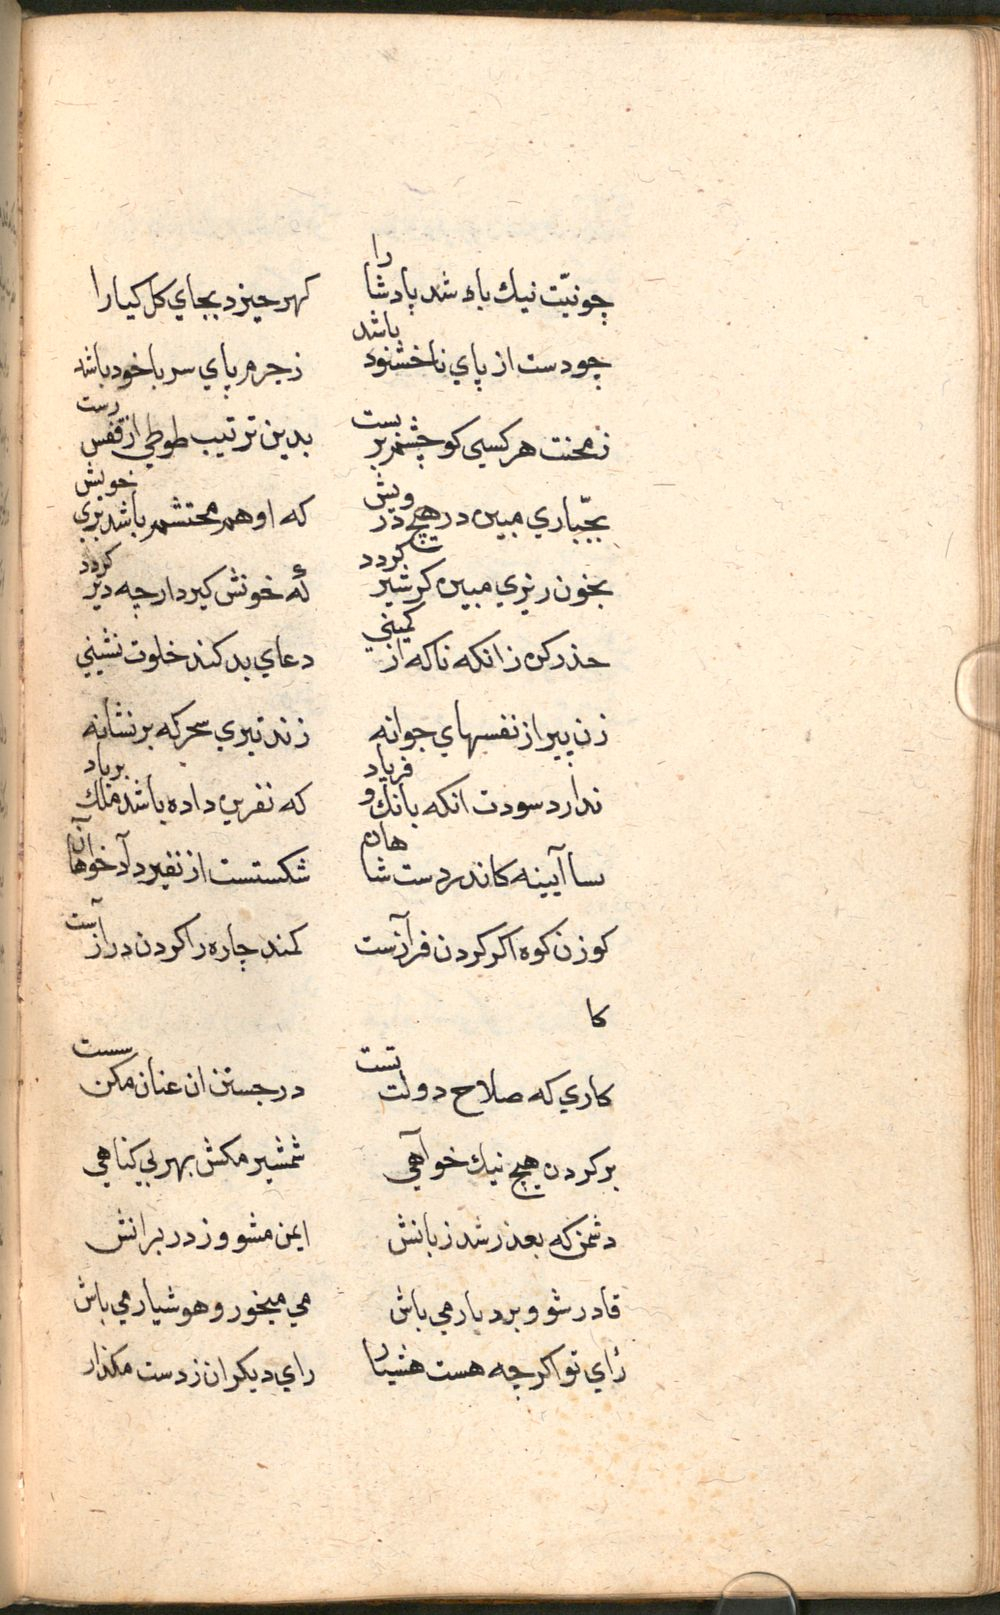 چو نیّت نیك باد شد پادشا را کهر خیزد بجاي کل کیا را
چو دست از پاي ناخشنود باشد زجرم پاي سر با خود باشد
زمحنت هر کسي کو چشم بر بست بدین ترتیب طوطي از قفس رست
بجبّاري مبین در هیچ درویش که او هم محتشم باشد بزي خویش
بخون ریزي مبین کر شیر کردد که خونش کیرد ارچه دیر کردد
حذر کن زانکه ناکه از کمیني دعاي بد کند خلوت نشیني
زن پیر از نفسهاي جوانه زند تیري سحر که بر نشانه
ندارد سودت انکه بانك و فریاد که نفرین داده باشد ملك بر باد
بسا آیینه کاندر دست شاهان شکستست از نفیر دادخواهان
کوزن کوه اکر کردن فرازست کمند چاره را کردن درازست
کا
کاري که صلاح دولت تست در جستن ان عنان مکن سست
بر کردن هیچ نیك خواهي شمشیر مکش بهر بي کناهي
دشمن که بعذر شد زبانش ایمن مشو وز در برانش
قادر شو و بردبار مي باش مي میخور و هوشیار مي باش
راي تو اکرچه هست هشیار راي دیکران زدست مکذار